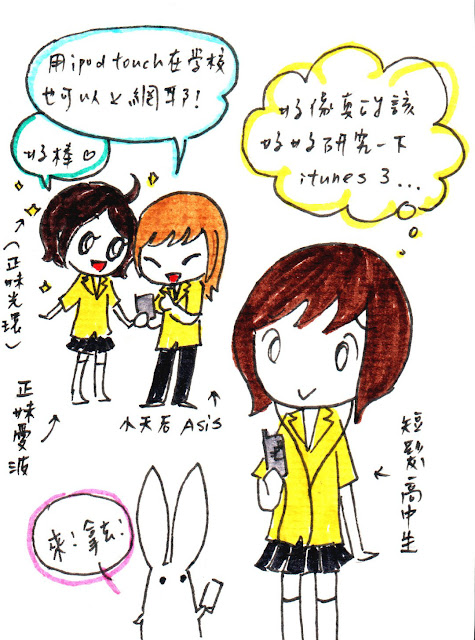 用ipod touch在学校
也可以上網耶!
好棒♡
好像真的該
好好研究一下
itunes 3...
(正妹光環)
正妹
小天后 Asis
短髮高中生
來!拿去!